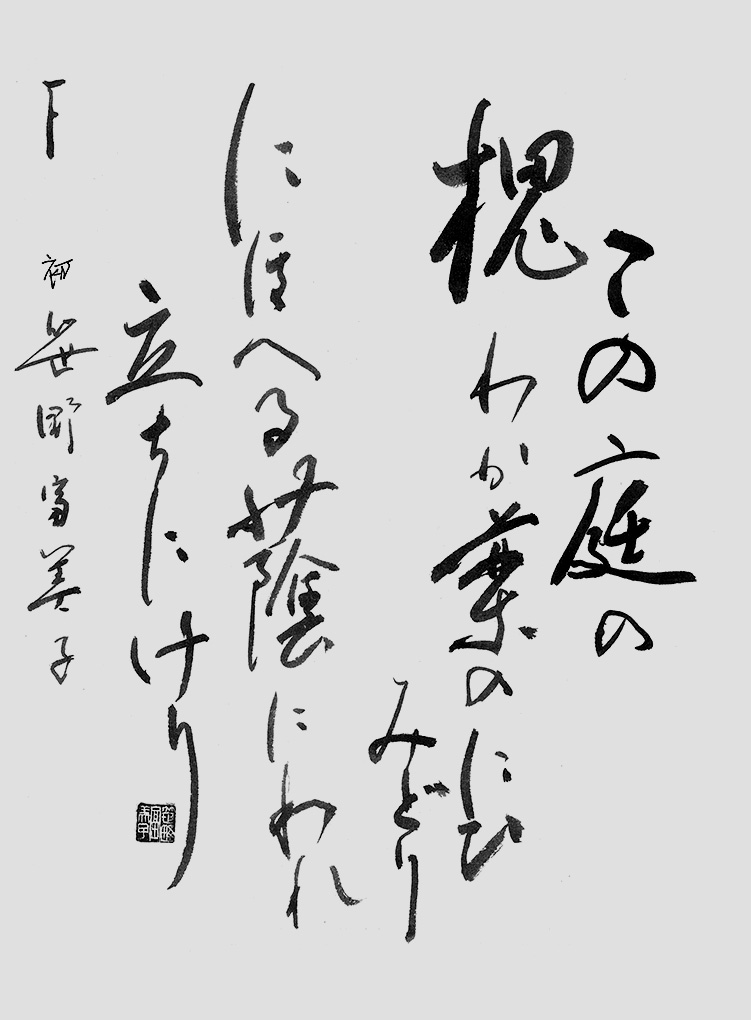 この庭の
槐わか葉のにひ
みどり
にほへる蔭にわれ
立ちにけり
下 初 笹野富美子